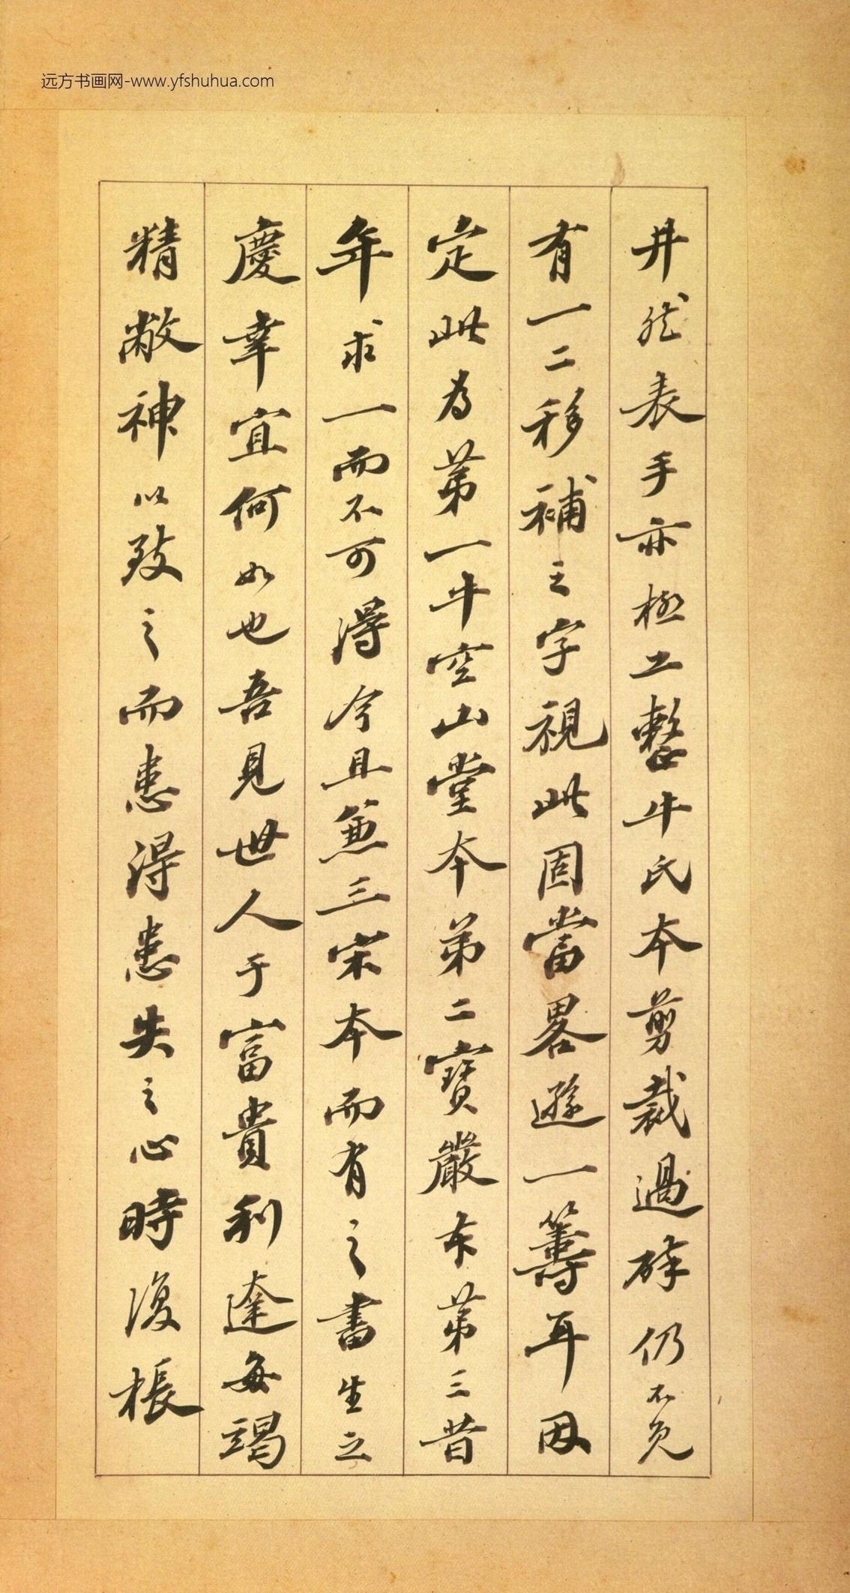 远方书画网-www.yfshuhua.com
井然表手亦極工整牛氏本剪裁過碎仍不免
有一二移補之字視此固當畧遜一籌耳因
定此為第一牛空山堂本第二寶嚴本第三昔
年求一而不可得今且兼三宋本而有之書生之
慶幸宜何如也吾見世人于富貴利達每竭
精敝神以致之而患得患失之心時復棖